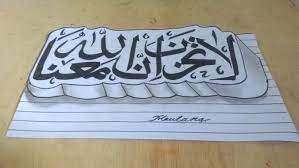 لا تحزن ان الله معنا
Meulang